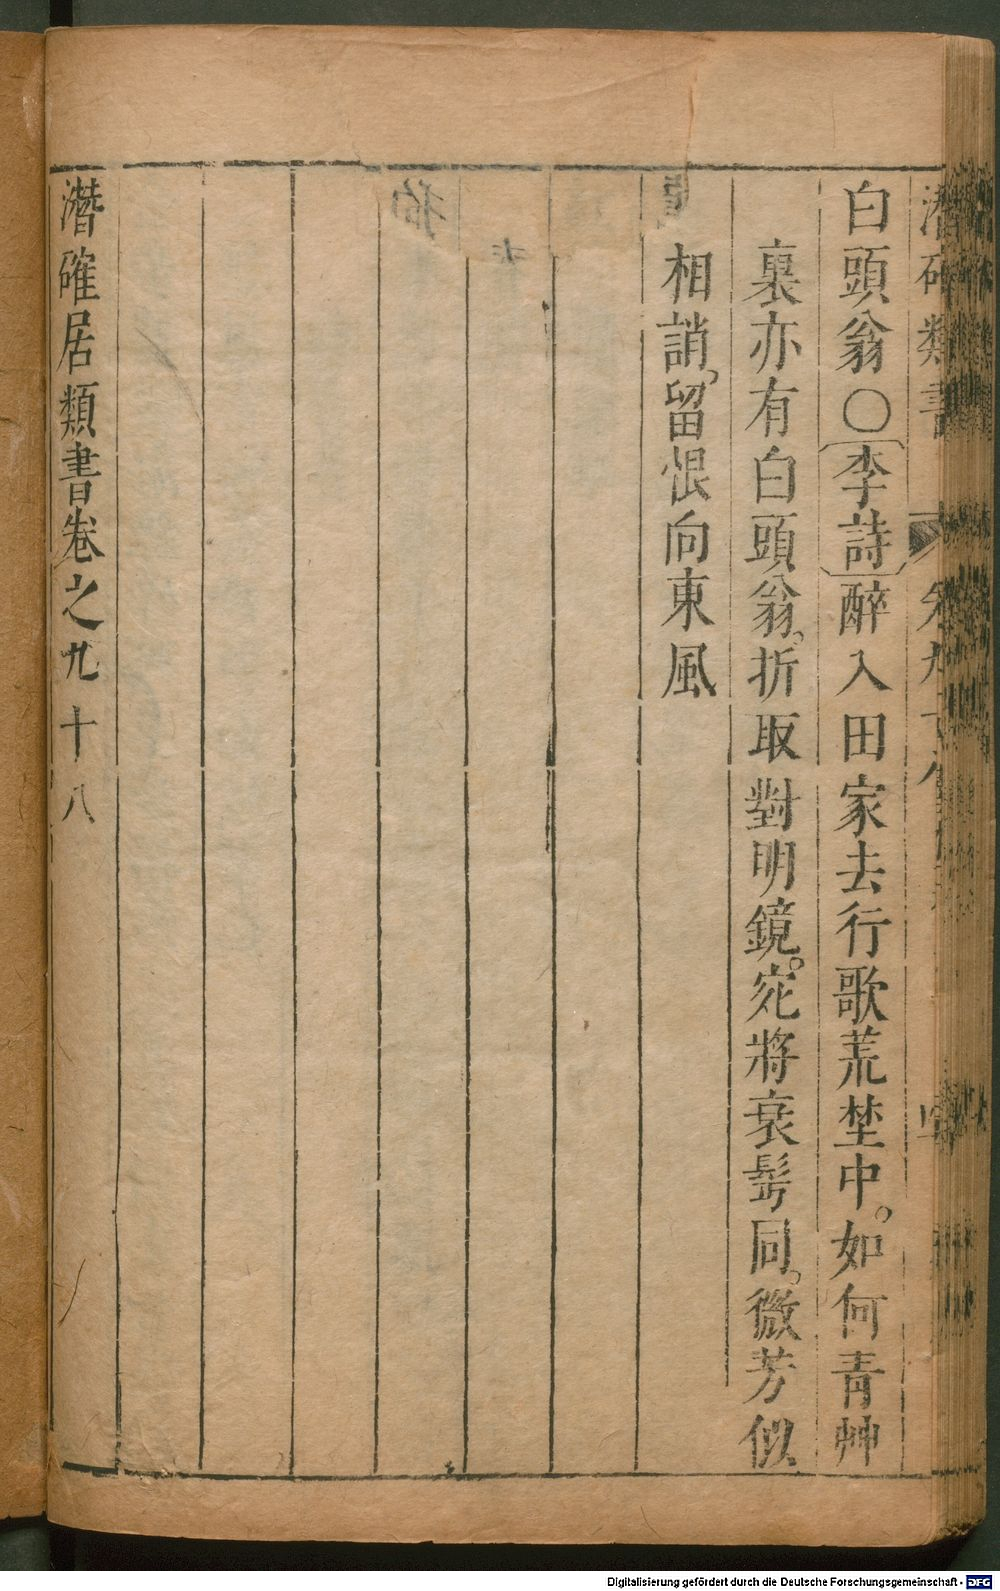 白頭翁〇李詩醉入田家去行歌荒埜中。如何青艸
裏亦有白頭翁。折取對明鏡。宛將衰髩同。微芳似
相誚。留恨向東風
潛確居類書卷之九十八
潛確類書
卷九十八
Digitalisierung gefördert durch die Deutsche Forschungsgemeinschaft - DFG